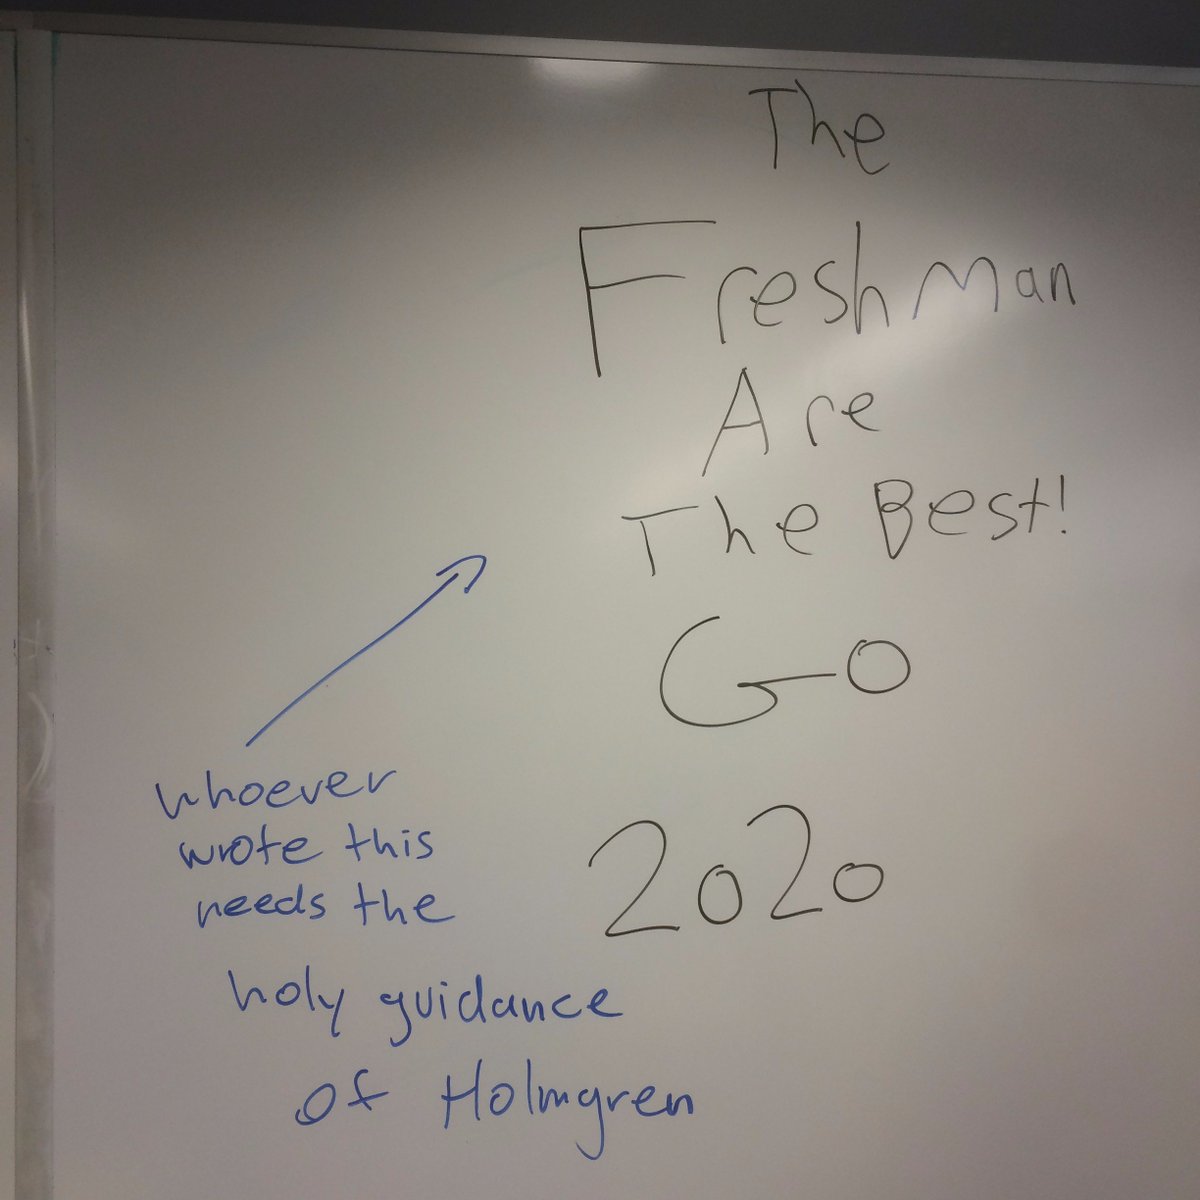 The
Freshman
Are
The Best!
GO
2020
whoever
wrote this
needs the
holy guidance
of Holmgren